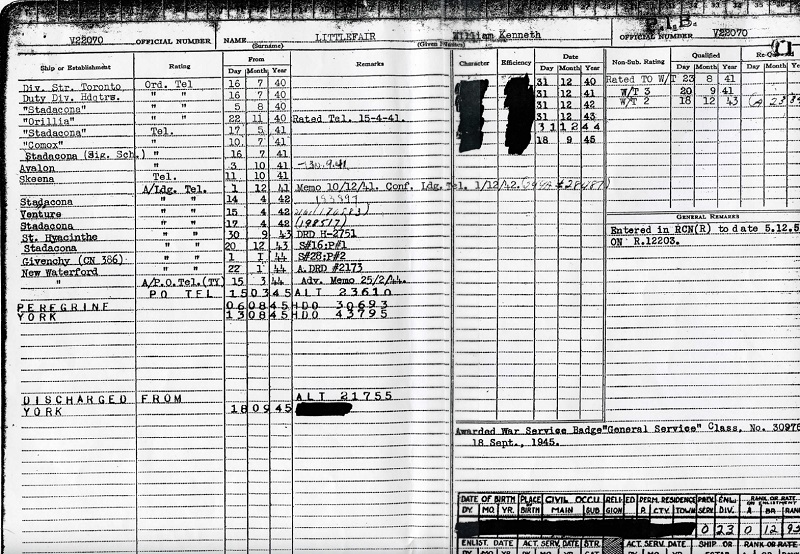 P.I.B.
V22070 OFFICIAL NUMBER NAME LITTLEFAIR William Kenneth OFFICIAL NUMBER V22070
(Surname) (Given Names)
Ship or Establishment Rating From Remarks
Day Month Year
Div. Str. Toronto Ord. Tel 16 7 40
Duty Div. Hdqtrs. " " 16 7 40
"Stadacona" " " 5 8 40
"Orillia" " " 22 11 40 Rated Tel. 15-4-41.
"Stadacona" Tel. 17 5 41
"Comox" " 10 7 41
Stadacona (Sig. Sch.) " 16 7 41
Avalon " 3 10 41
Skeena Tel. 11 10 41
A/Ldg. Tel. 1 12 41 Memo 10/12/41. Conf. Ldg. Tel. 1/12/42.
Stadacona " " 14 4 42
Venture " " 15 4 42
Stadacona " " 17 4 42 (198517)
St. Hyacinthe " " 30 9 43 DRD H-2751
Stadacona " " 20 12 43 S#16;P#1
Givenchy (CN 386) " " 1 1 44 S#28;P#2
New Waterford " " 22 1 44 A.DRD #2173
" A/P.O.Tel.(TY) 15 3 44 Adv. Memo 25/2/44.
PO TEL 150345 ALT 23610
PEREGRINE 060845 HDO 30693
YORK 130845 HDO 43795
DISCHARGED FROM ALT 21755
YORK 180945
Character Efficiency Date
Day Month Year
31 12 40
31 12 41
31 12 42
31 12 43
31 12 44
18 9 45
Non-Sub. Rating Qualified Re-Q
Day Month Year Day Month Year
Rated TO W/T 23 8 41
W/T 3 20 9 41
W/T 2 18 12 43
GENERAL REMARKS
Entered in RCN(R) to date 5.12.5
ON R.12203.
Awarded War Service Badge "General Service" Class, No. 30976
18 Sept., 1945.
DATE OF BIRTH PLACE OF BIRTH CIVIL OCCU. RELIGION ED. PERM. RESIDENCE PREV. SERV. ENL. DIV. RANK OR RATE ON ENLISTMENT
DY. MO. YR. MAIN SUB P. CTY. TOWN A BR RAN
0 23 0 12 95
ENLIST. DATE ACT. SERV. DATE STR. ACT. SERV. DATE SHIP OR RANK OR RATE
DY. MO. YR. DY. MO. YR.